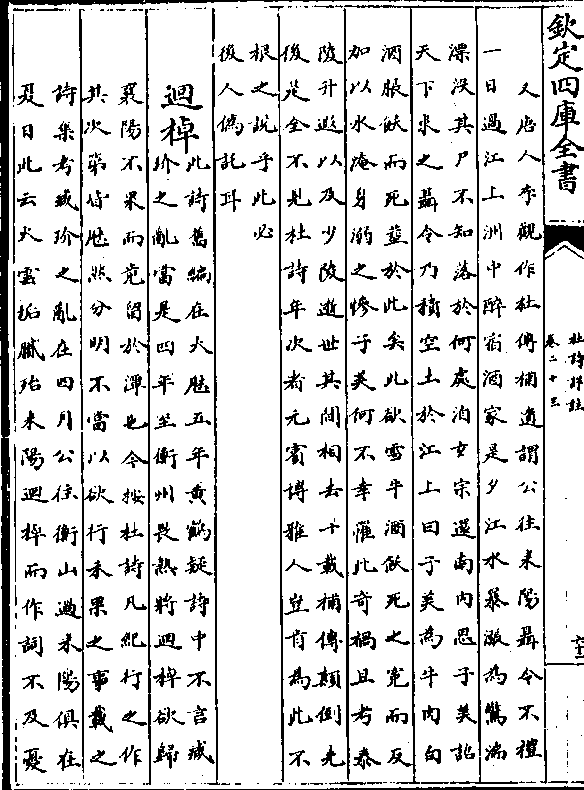 欽定四庫全書
杜詩詳註
卷二十三
又唐人李觀作杜傳補遺謂公往耒陽聶令不禮
一日過江上洲中醉宿酒家是夕江水暴漲為驚湍
漂沒其尸不知落於何處洎玄宗還南內思子美詔
天下求之聶令乃積空土於江上曰子美為牛肉白
酒脹飫而死葬於此矣此欲雪牛酒飫死之冤而反
加以水淹身溺之慘子美何不幸罹此奇禍且考泰
陵升遐以及少陵逝世其間相去十載補傳顛倒先
後是全不見杜詩年次者元賓博雅人豈肯為此不
根之說乎此必
後人偽託耳
迴棹
此詩舊編在大歷五年黃鶴疑詩中不言臧
玠之亂當是四年至衡州畏熱將迴棹欲歸
襄陽不果而竟留於潭也今按杜詩凡紀行之作
其次第皆歷然分明不當以欲行未果之事載之
詩集考臧玠之亂在四月公往衡山過耒陽俱在
夏日此云火雲垢膩殆耒陽迴棹而作詞不及憂